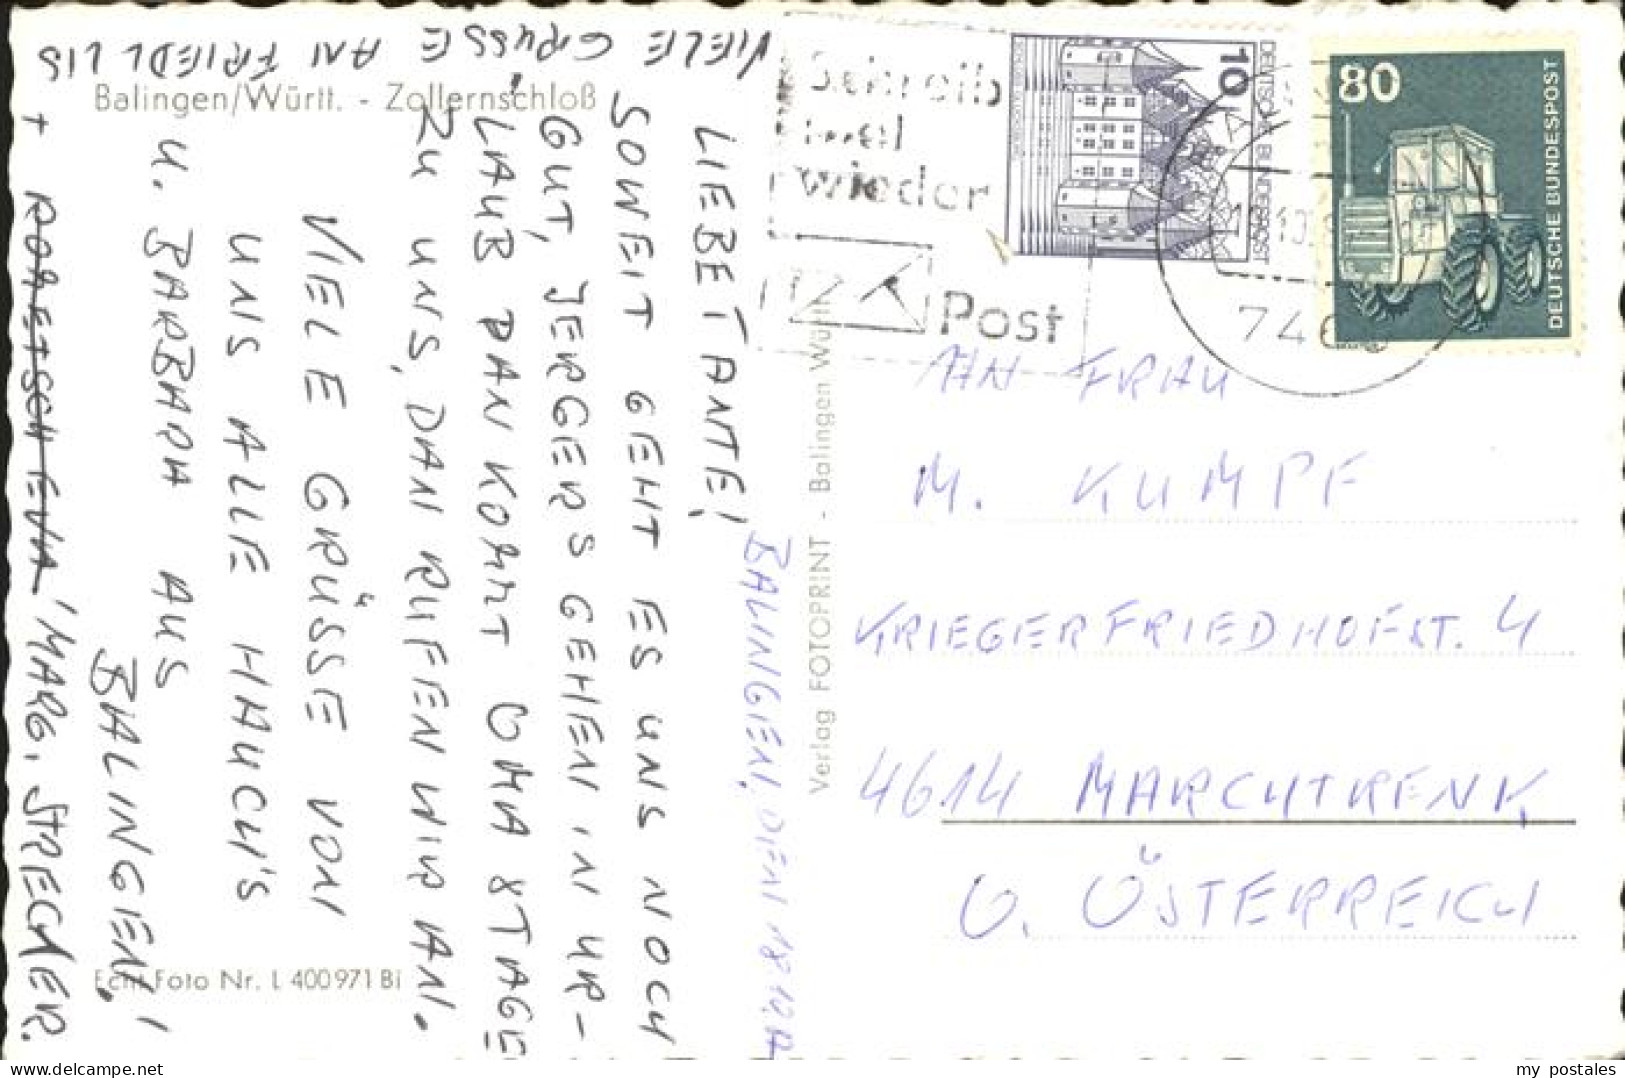 Balingen/Württ. - Zollernschloß
BALINGEN, DEN 18.10.
LIEBE TANTE!
SOWEIT GEHT ES UNS NOCH
GUT, JERGERS GEHEN IN UR-
LAUB DAN KOMMT OMA 8 TAGE
ZU UNS, DAN RUFEN WIR AN.
VIELE GRÜSSE VON
UNS ALLE HAUCH'S
U. BARBARA AUS
BALINGEN!
VIELE GRÜSSE AN FRIEDL LIS
+ RORETSCH EVA, MARG. STRECHER.
Echt Foto Nr. L 400971 Bi
Verlag FOTOPRINT - Balingen Württ.
Schreib
mal
wieder
Post
10
DEUTSCHE BUNDESPOST
80
DEUTSCHE BUNDESPOST
746
AN FRAU
M. KUMPF
KRIEGERFRIEDHOFST. 4
4614 MARCHTRENK
O. ÖSTERREICH
delcampe.net
my_postales